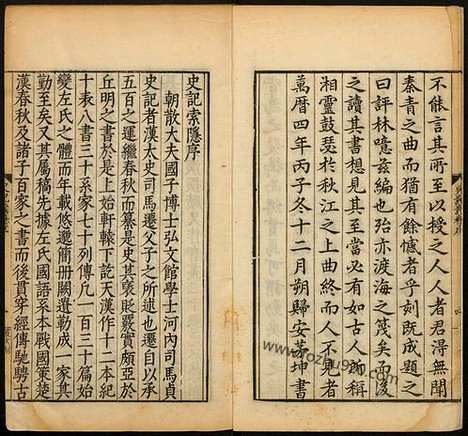 不能言其所以授之人人者君得無聞
秦青之曲而猶有餘憾者乎刻既成題之
曰評林噫茲編也殆亦渡海之筏矣而後
之讀其書想見其至者必有如古人所稱
湘靈鼓瑟於秋江之上曲終而人不見者
萬曆四年丙子冬十二月朔歸安茅坤書
史記索隱序
朝散大夫國子博士弘文館學士河內司馬貞
史記者漢太史司馬遷父子之所述也遷自以承
五百之運繼春秋而纂是史其褒貶覈實頗亞於
丘明之書於是上始軒轅下訖天漢作十二本紀
十表八書三十系家七十列傳凡一百三十篇始
變左氏之體而年載悠邈簡冊闕遺勒成一家其
勤至矣又其屬稿先據左氏國語系本戰國策楚
漢春秋及諸子百家之書而後貫穿經傳馳騁古